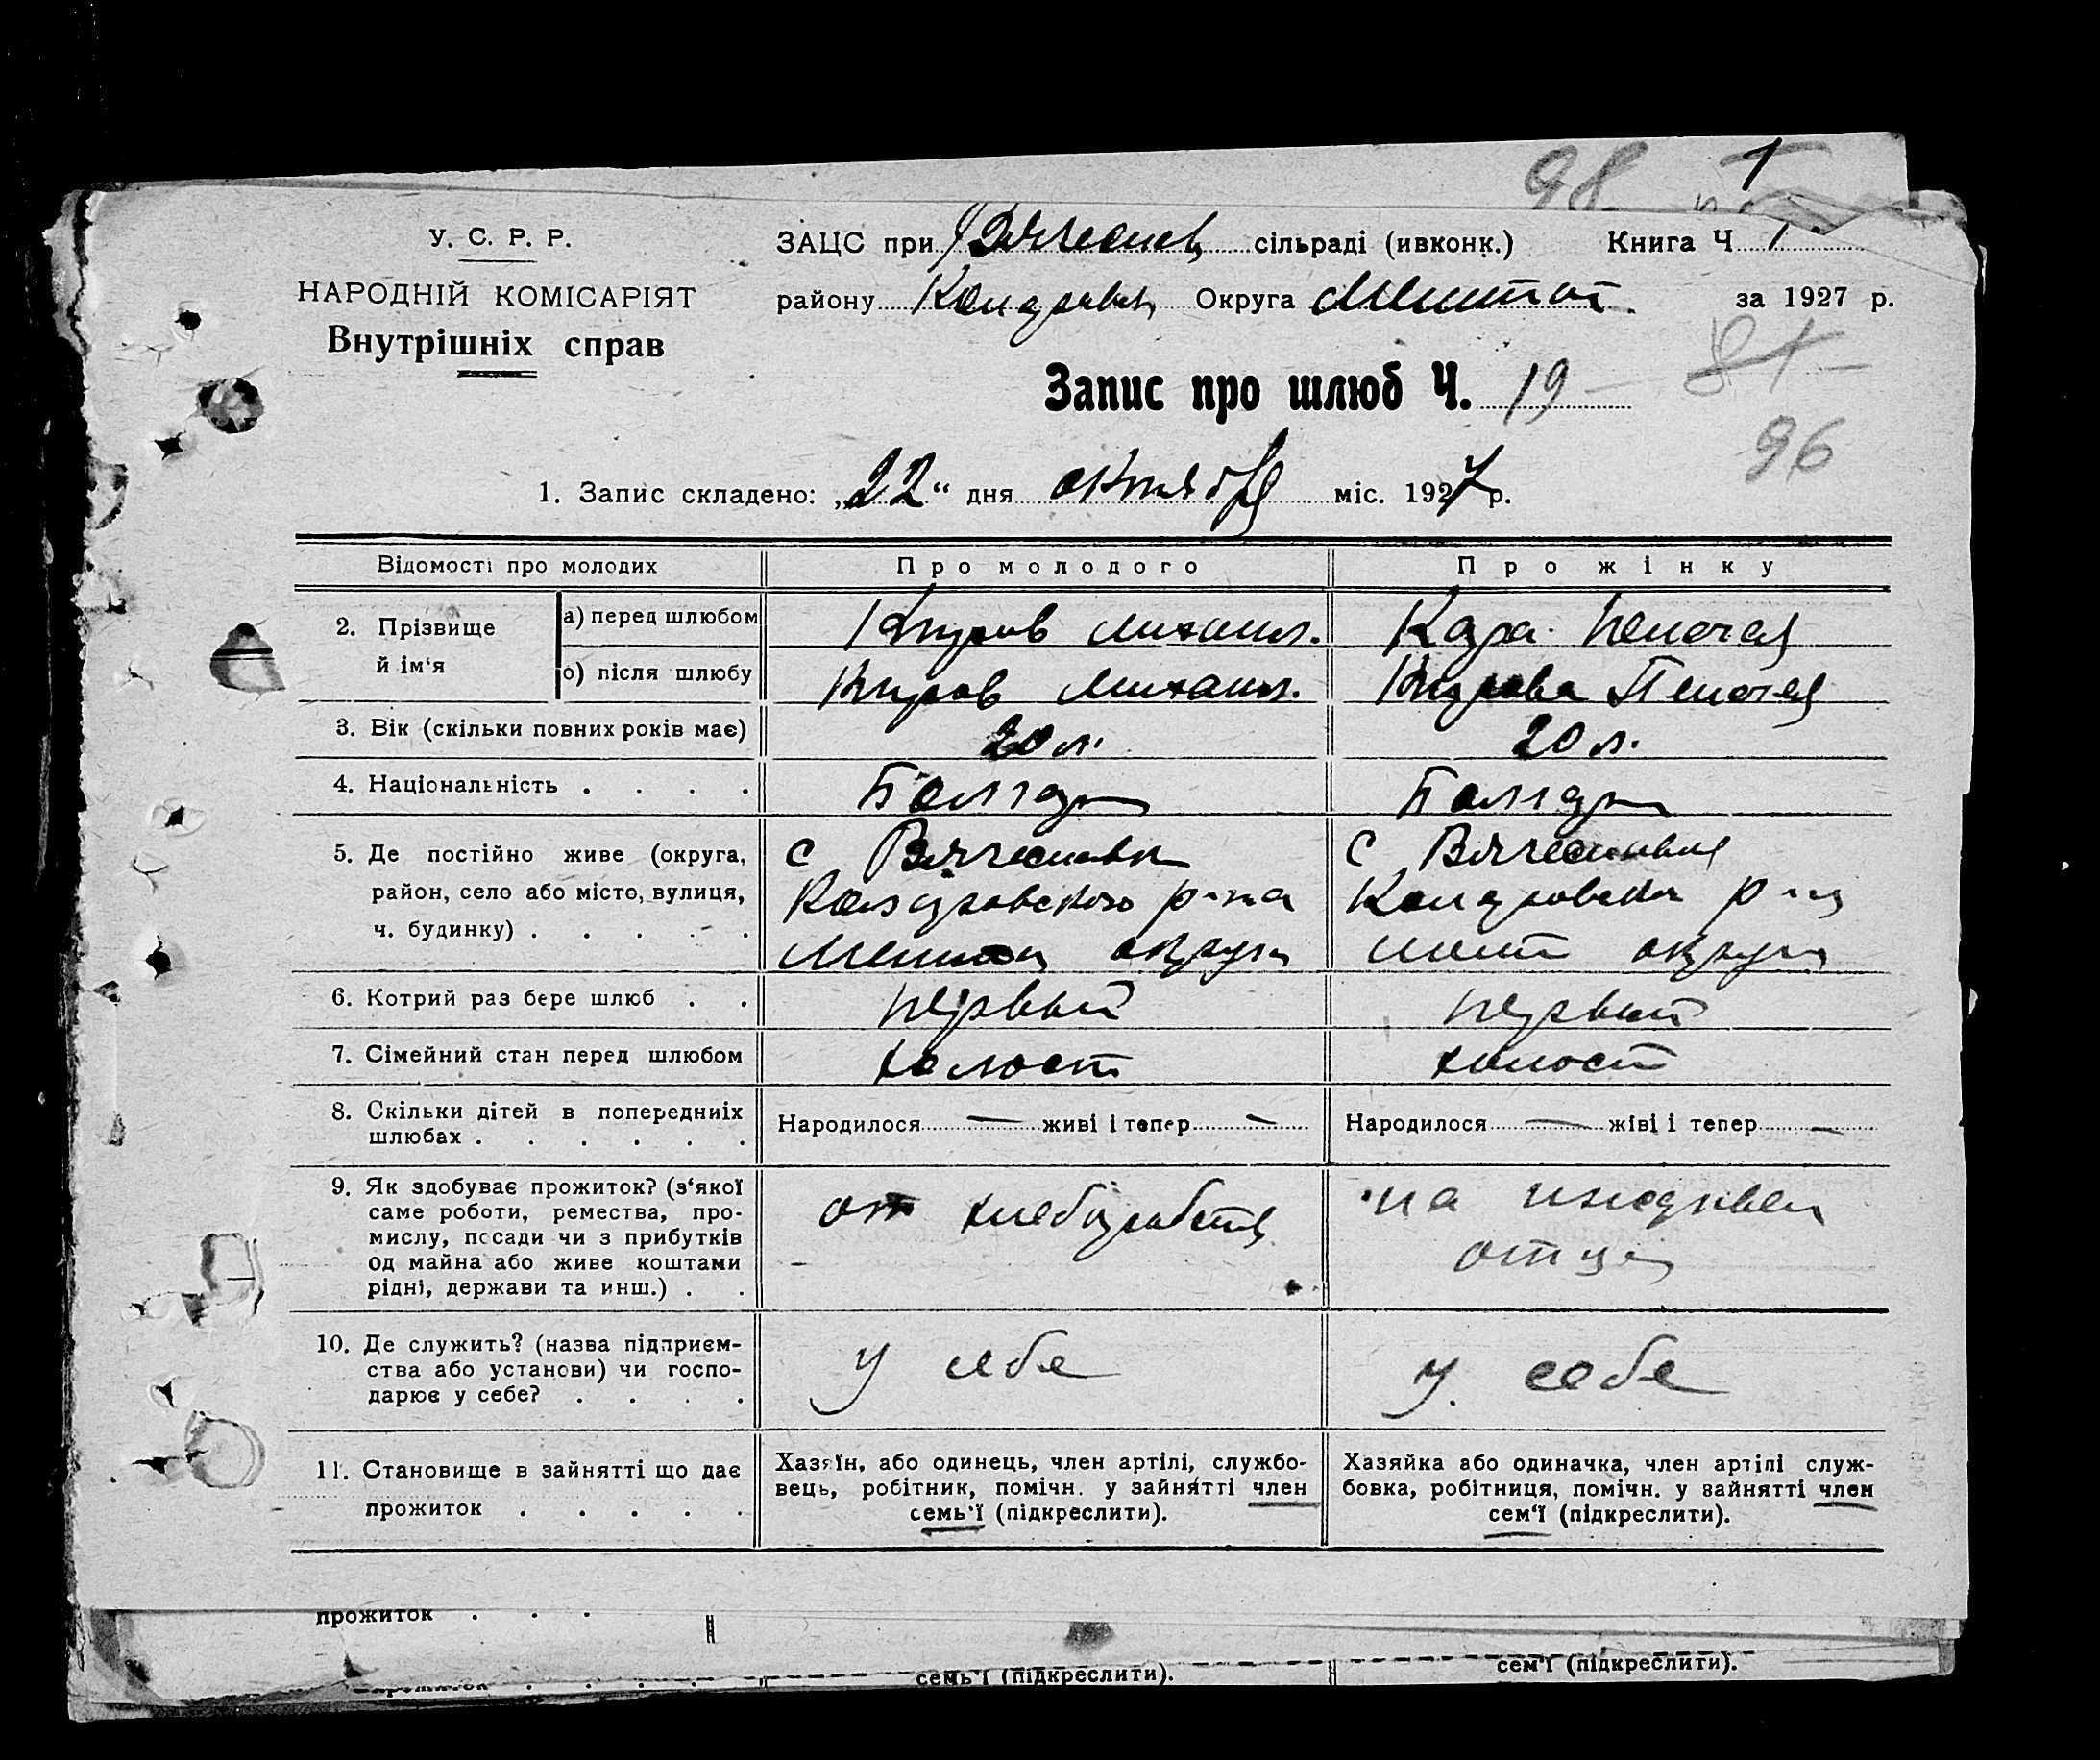 98 1
У. С. Р. Р.
НАРОДНІЙ КОМІСАРІЯТ
Внутрішніх справ
ЗАЦС при Вячеслов сільраді (ивконк.) Книга Ч 1
району Коларов Округа Мелитоп. за 1927 р.
Запис про шлюб Ч. 19
96
1. Запис складено: „22“ дня октября міс. 1927 р.
Відомості про молодих Про молодого Про жінку
2. Прізвище й ім‘я
а) перед шлюбом Михаил. Кара Пелагея
о) після шлюбу Михаил. Пелагея
3. Вік (скільки повних років має) 20 л. 20 л.
4. Національність . . . . Болгар Болгар
5. Де постійно живе (округа,
район, село або місто, вулиця,
ч. будинку) . . . . .
с Вячеславки
Коларовского р-на
Мелитоп округи
с Вячеславки
Коларовского р-на
мелит округи
6. Котрий раз бере шлюб . . первый первый
7. Сімейний стан перед шлюбом холост холост
8. Скільки дітей в попередниіх
шлюбах . . . . . .
Народилося — живі і тепер — Народилося — жіві і тепер —
9. Як здобуває прожиток? (з‘якої
саме роботи, ремества, про-
мислу, посади чи з прибутків
од майна або живе коштами
рідні, держави та инш.) . .
от хлеборобства
на иждивен
отца
10. Де служить? (назва підприєм-
ства або установи) чи госпо-
дарює у себе? . . . .
у себе
у себе
11. Становище в зайнятті що дає
прожиток . . . . .
Хазяїн, або одинець, член артілі, службо-
вець, робітник, помічн. у зайнятті член
семь‘ї (підкреслити).
Хазяйка або одиначка, член артілі служ-
бовка, робітниця, помічн. у зайнятті член
сем‘ї (підкреслити).
прожиток . . .
семь‘ї (підкреслити). сем‘ї (підкреслити).